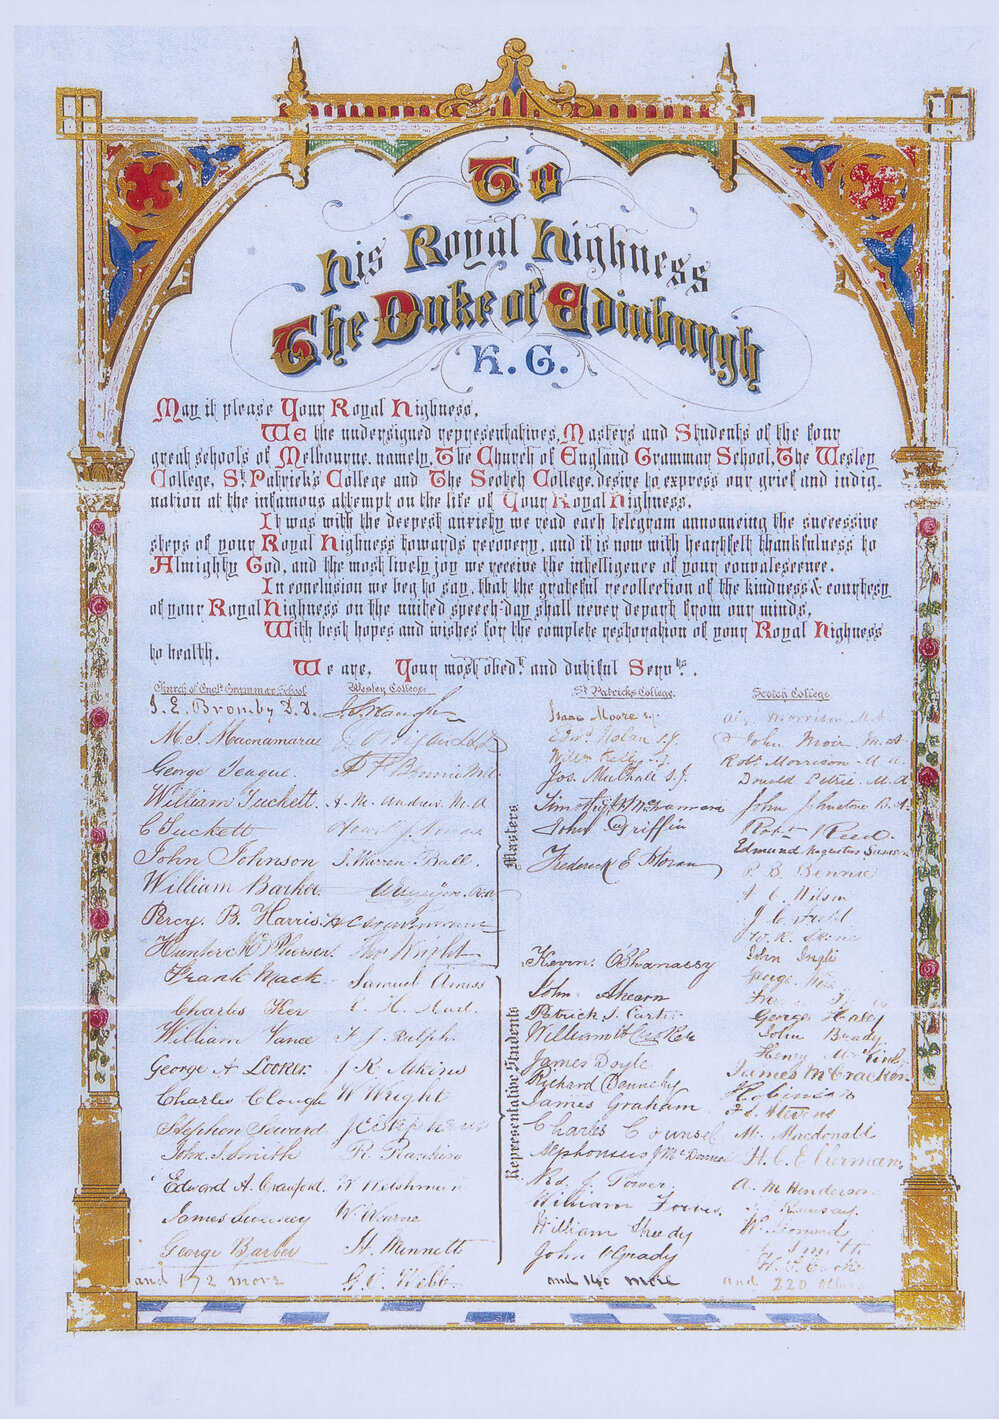 To
His Royal Highness
The Duke of Edinburgh
K. G.
May it please Your Royal Highness,
We the undersigned representatives, Masters and Students of the four
great schools of Melbourne, namely, The Church of England Grammar School, The Wesley
College, St Patrick's College and The Scotch College, desire to express our grief and indig-
nation at the infamous attempt on the life of Your Royal Highness.
It was with the deepest anxiety we read each telegram announcing the successive
steps of your Royal Highness towards recovery, and it is now with heartfelt thankfulness to
Almighty God, and the most lively joy we receive the intelligence of your convalescence.
In conclusion we beg to say, that the grateful recollection of the kindness & courtesy
of your Royal Highness on the united speech-day shall never depart from our minds,
With best hopes and wishes for the complete restoration of your Royal Highness
to health.
We are, Your most obedt. and dutiful Servts.
Church of Engld. Grammar School
J. E. Bromby D.D.
M. S. Macnamara
George Teague.
William Tuckett.
C Tuckett
John Johnson
William Barker
Percy. B. Harris
Frank Mack
Charles Ker
William Vance
George A Looker.
Charles Clough
Stephen Seward
John S. Smith
Edward A. Crawford.
James Sweeney
George Barber
and 172 more
Wesley College
A. M. Andrew. M.A
J. Warren Ball.
Wright
Samuel Amess
F J. Ralph.
J R. Atkins
W Wright
R. Rankin
W Welshman
W. Wearne
H. Mennett
G. C. Webb.
Masters
Representative Students
St Patricks College.
Isaac Moore s.j.
Edwd. Nolan S.J.
Willm Kelly S.J.
Jos. Mulhall S.J.
Timothy McNamara
John Griffin
Frederick E Horan
Kevin. O'Shanassy
John Ahearn
Patrick S. Carter
James Doyle
Richard Dennehy
James Graham
Charles Counsel
Alphonsus J McDonnell
Rd. J. Power.
William
William Sheedy
John O'Grady
and 140 more
Scotch College
Morrison M.A
John Moir M.A.
Robt. Morrison M.A.
Donald Petrie. M.A
John Johnstone B.A.
Robt Reed.
Edmund Augustus Samson
P. B. Bennie
A. C. Wilson
J. C. Field
W. K. Skene
John Inglis
George
George Haley
John Brady
Henry
James McCracken
Robinson
Stevens
M. Macdonald
A. M Henderson.
Ramsay.
W.
Smith
and 220 others